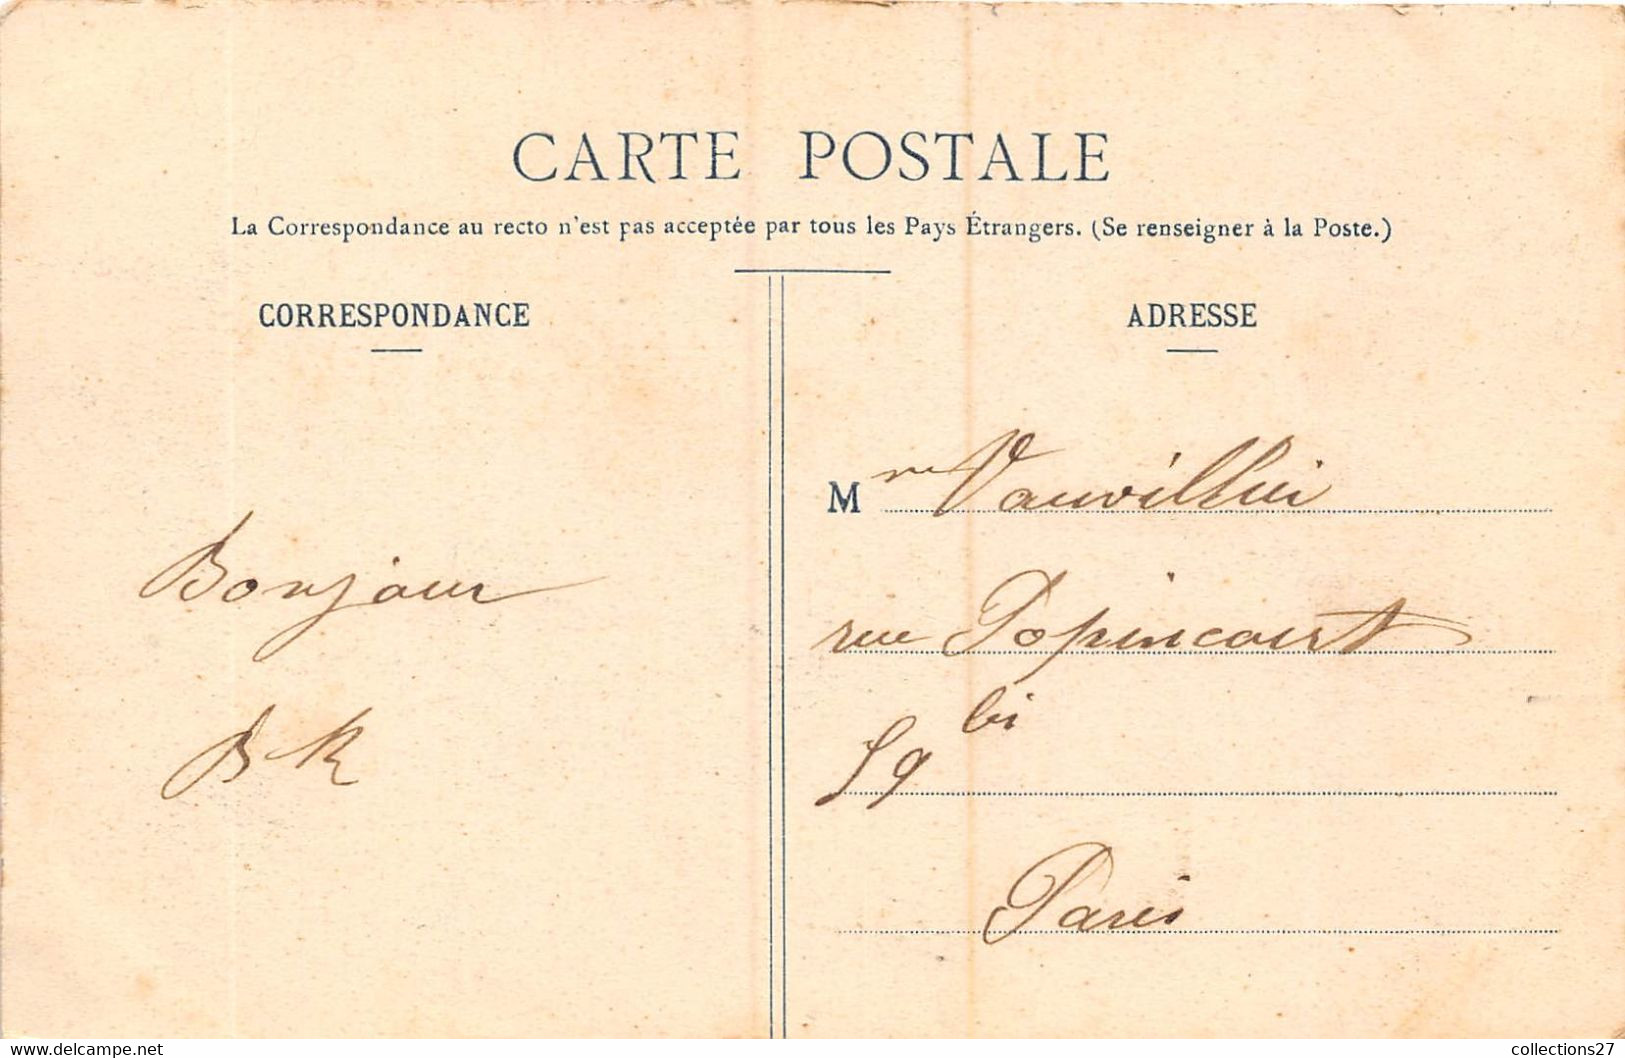 CARTE POSTALE
La Correspondance au recto n'est pas acceptée par tous les Pays Étrangers. (Se renseigner à la Poste.)
CORRESPONDANCE
Bonjour
BR
ADRESSE
M me
rue Popincourt
59 bis
Paris
delcampe.net
collections27